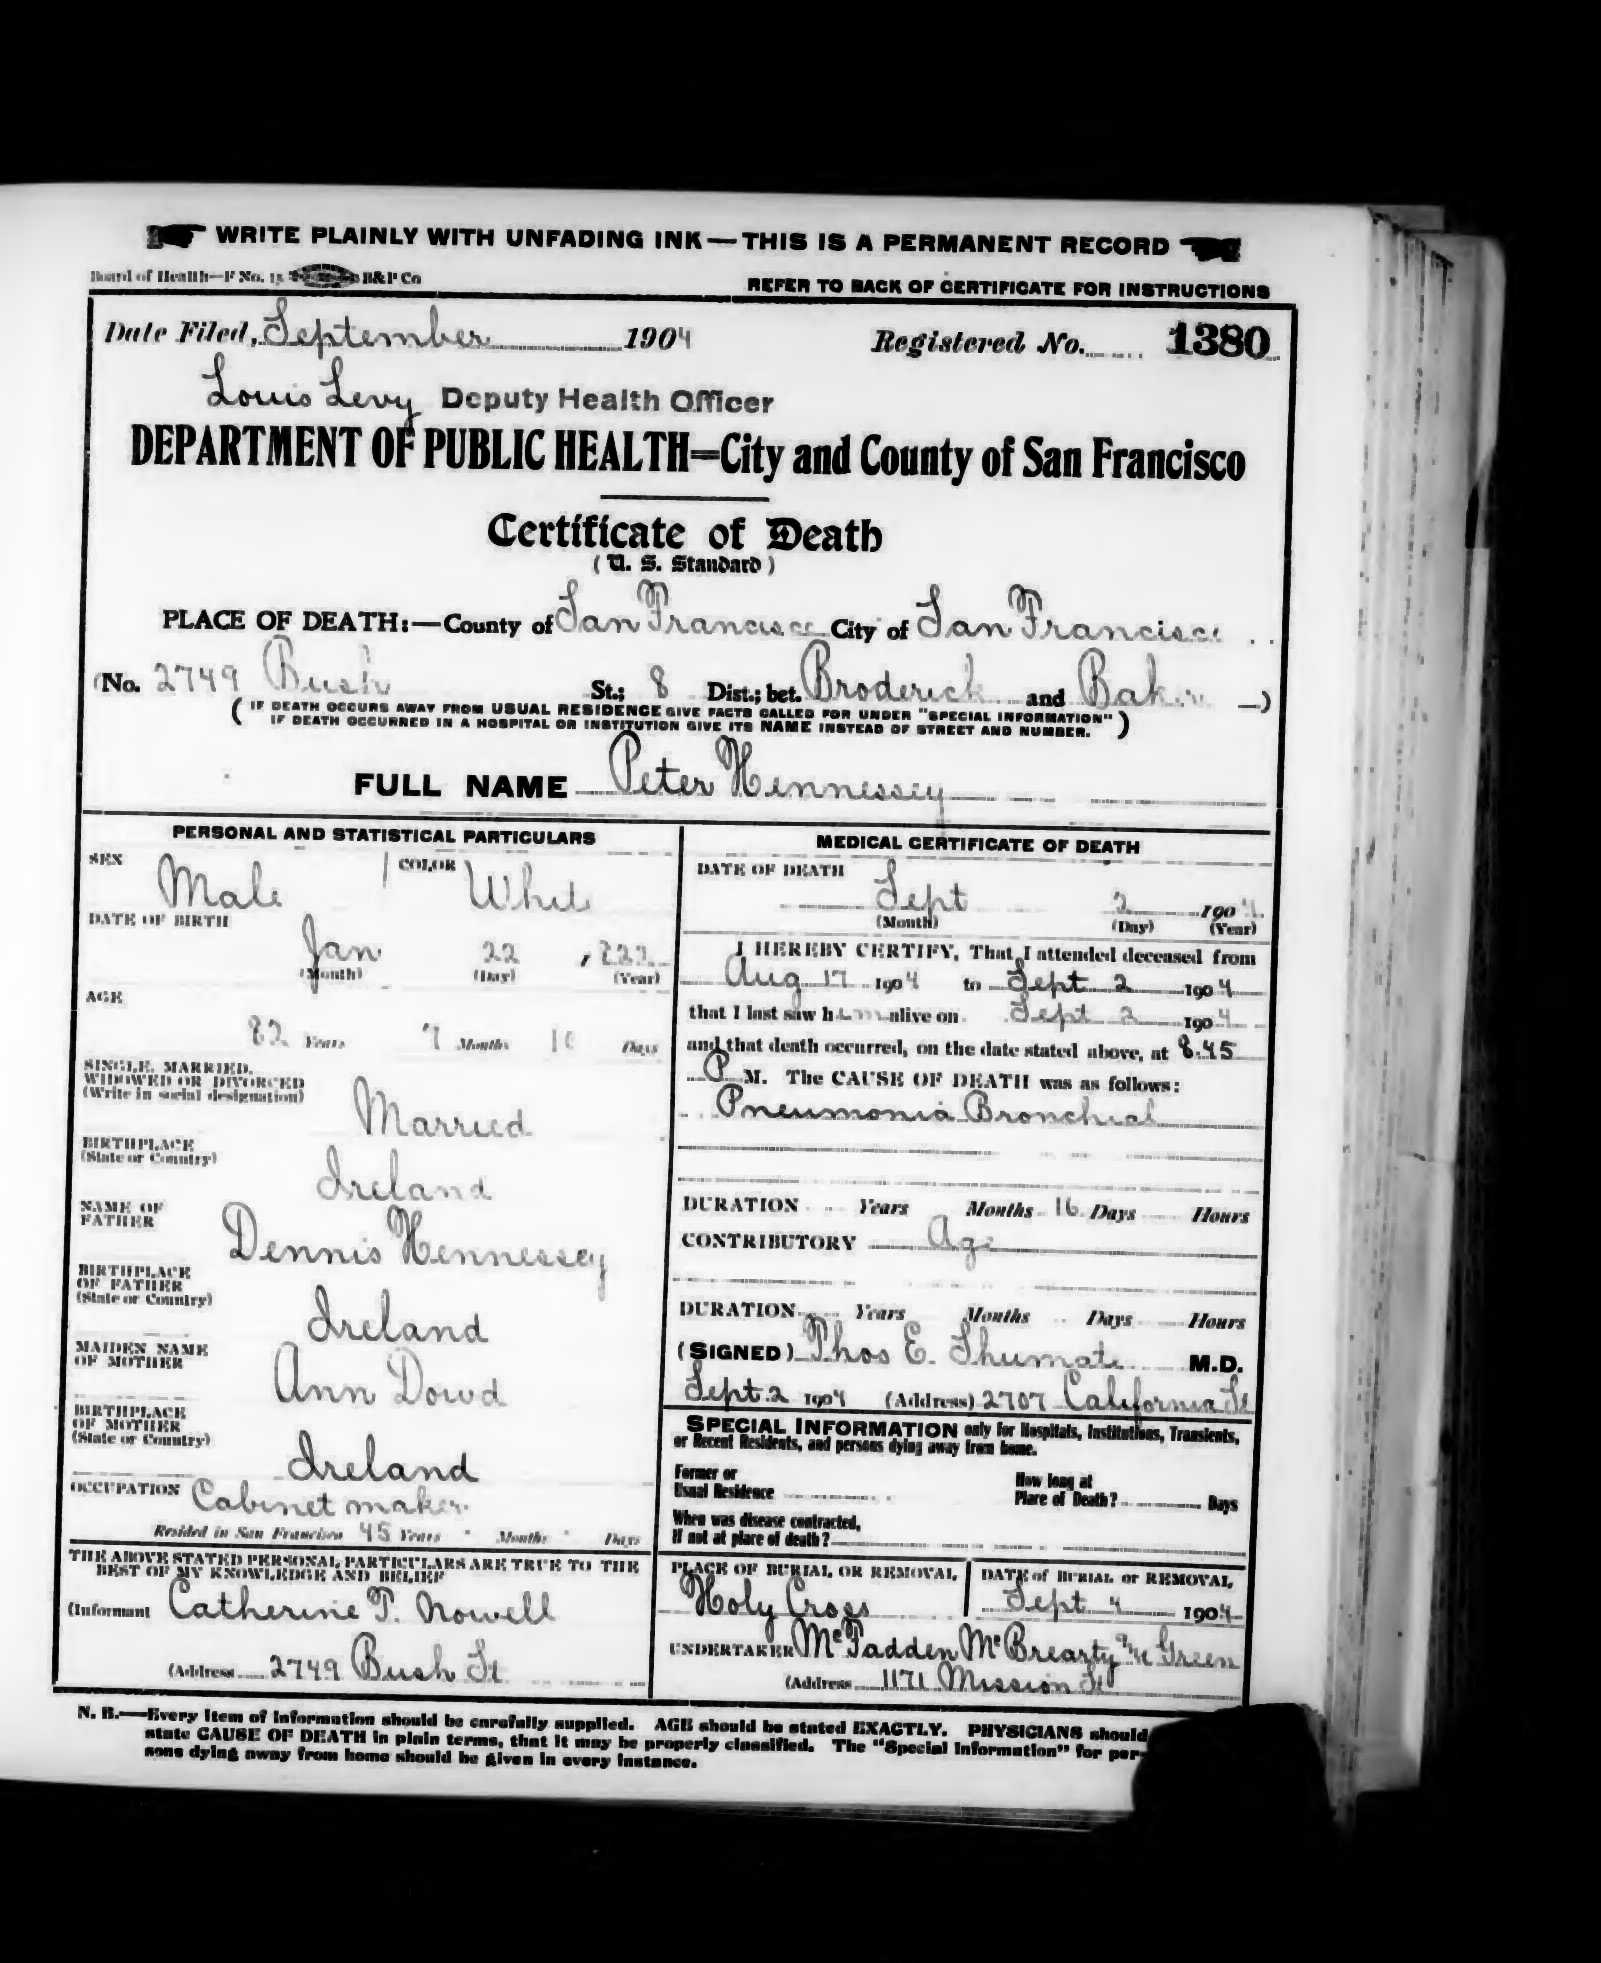 WRITE PLAINLY WITH UNFADING INK—THIS IS A PERMANENT RECORD
Board of Health—F No. 15 B&P Co
REFER TO BACK OF CERTIFICATE FOR INSTRUCTIONS
Date Filed, September 1904 Registered No. 1380
Louis Levy Deputy Health Officer
DEPARTMENT OF PUBLIC HEALTH=City and County of San Francisco
Certificate of Death
( U. S. Standard )
PLACE OF DEATH:—County of San Francisco City of San Francisco
(No. 2749 Bush St.; 8 Dist.; bet. Broderick and Baker )
( IF DEATH OCCURS AWAY FROM USUAL RESIDENCE GIVE FACTS CALLED FOR UNDER "SPECIAL INFORMATION"
IF DEATH OCCURRED IN A HOSPITAL OR INSTITUTION GIVE ITS NAME INSTEAD OF STREET AND NUMBER. )
FULL NAME Peter Hennessey
PERSONAL AND STATISTICAL PARTICULARS
SEX Male COLOR White
DATE OF BIRTH
Jan 22 , 822
(Month) (Day) (Year)
AGE
82 Years 7 Months 10 Days
SINGLE, MARRIED,
WIDOWED OR DIVORCED
(Write in social designation)
Married
BIRTHPLACE
(State or Country)
Ireland
NAME OF
FATHER
Dennis Hennessey
BIRTHPLACE
OF FATHER
(State or Country)
Ireland
MAIDEN NAME
OF MOTHER
Ann Dowd
BIRTHPLACE
OF MOTHER
(State or Country)
Ireland
OCCUPATION Cabinet maker
Resided in San Francisco 45 Years Months Days
THE ABOVE STATED PERSONAL PARTICULARS ARE TRUE TO THE
BEST OF MY KNOWLEDGE AND BELIEF
(Informant Catherine T. Nowell
(Address 2749 Bush St
MEDICAL CERTIFICATE OF DEATH
DATE OF DEATH
Sept 2 1904
(Month) (Day) (Year)
I HEREBY CERTIFY, That I attended deceased from
Aug 17 1904 to Sept 2 1904
that I last saw him alive on Sept 2 1904
and that death occurred, on the date stated above, at 8.45
P M. The CAUSE OF DEATH was as follows:
Pneumonia Bronchial
DURATION Years Months 16 Days Hours
CONTRIBUTORY Age
DURATION Years Months Days Hours
(SIGNED) Thos E. Shumate M.D.
Sept. 2 1904 (Address) 2707 California St
SPECIAL INFORMATION only for Hospitals, Institutions, Transients,
or Recent Residents, and persons dying away from home.
Former or
Usual Residence
How long at
Place of Death? Days
When was disease contracted,
If not at place of death?
PLACE OF BURIAL OR REMOVAL
Holy Cross
DATE of BURIAL or REMOVAL
Sept 4 1904
UNDERTAKER McFadden McBrearty & Green
(Address 1171 Mission St
N. B.—Every item of information should be carefully supplied. AGE should be stated EXACTLY. PHYSICIANS should
state CAUSE OF DEATH in plain terms, that it may be properly classified. The "Special Information" for per-
sons dying away from home should be given in every instance.